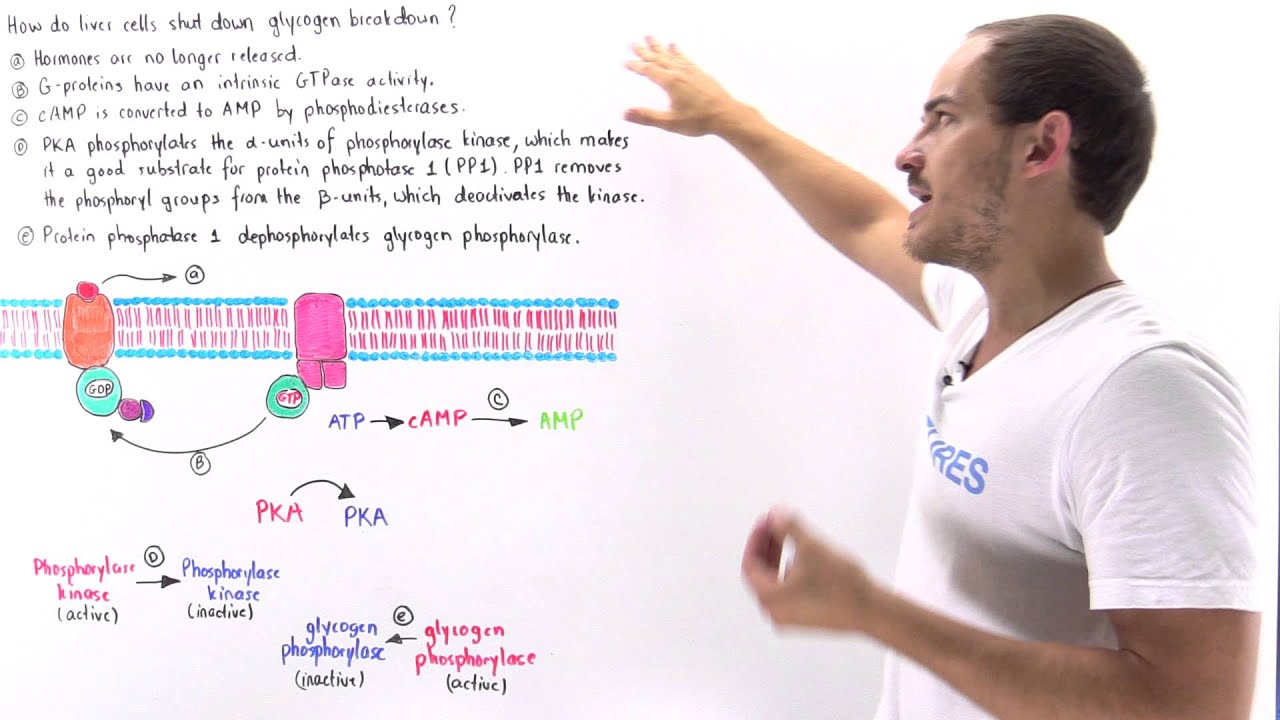 How do liver cells shut down glycogen breakdown?
ⓐ Hormones are no longer released.
Ⓑ G-proteins have an intrinsic GTPase activity.
Ⓒ cAMP is converted to AMP by phosphodiesterases.
Ⓓ PKA phosphorylates the α-units of phosphorylase kinase, which makes
it a good substrate for protein phosphotase 1 (PP1). PP1 removes
the phosphoryl groups from the β-units, which deactivates the kinase.
ⓔ Protein phosphatase 1 dephosphorylates glycogen phosphorylase.
ⓐ
GDP
GTP
Ⓒ
ATP cAMP AMP
Ⓑ
PKA PKA
Ⓓ
Phosphorylase
kinase
(active)
Phosphorylase
kinase
(inactive)
ⓔ
glycogen
phosphorylase
(inactive)
glycogen
phosphorylase
(active)